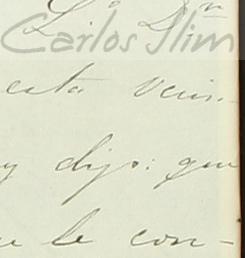 Carlos Slim
esta vein-
y dijo: que
le con-